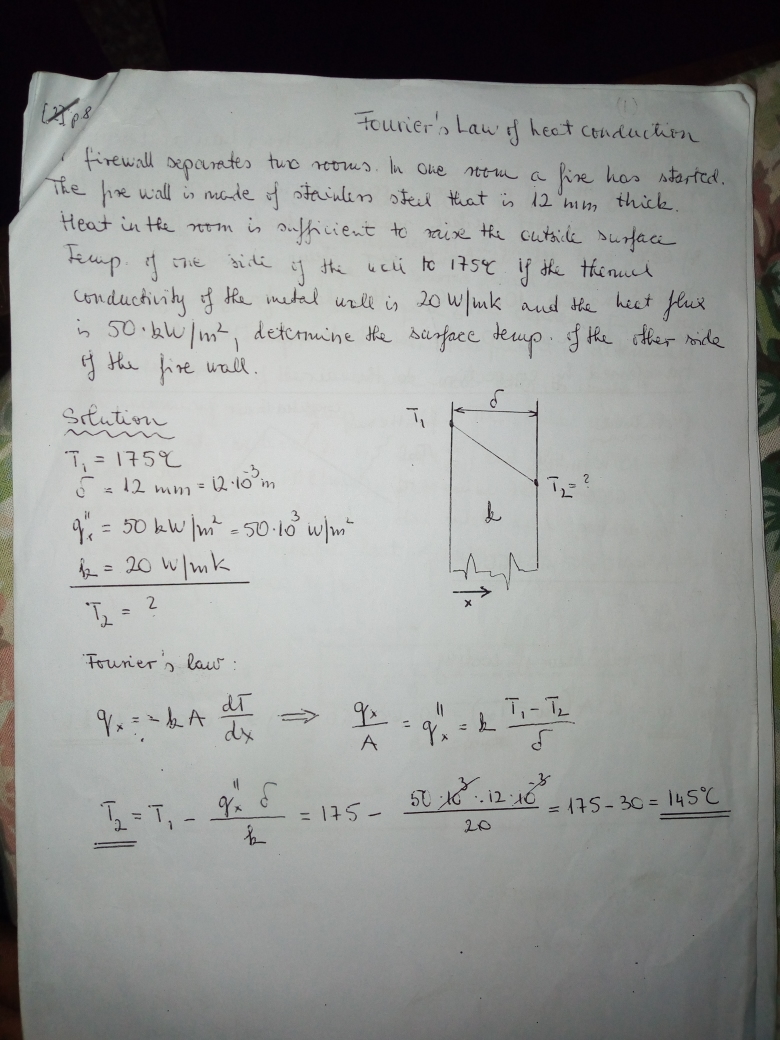 [2] p8
(1)
Fourier's Law of heat conduction
firewall separates two rooms. In one room a fire has started.
The fire wall is made of stainless steel that is 12 mm thick.
Heat in the room is sufficient to raise the outside surface
Temp. of one side of the wall to 175℃ if the thermal
conductivity of the metal wall is 20 W/mk and the heat flux
is 50·kW/m², determine the surface temp. of the other side
of the fire wall.
Solution
T₁ = 175℃
δ = 12 mm = 12·10⁻³m
q″ₓ = 50 kW/m² = 50·10³ W/m²
k = 20 W/mk
T₂ = ?
T₁
δ
T₂ = ?
k
x
Fourier's law:
qₓ = -kA dT/dx ⟹ qₓ/A = q″ₓ = k (T₁ - T₂)/δ
T₂ = T₁ - q″ₓ δ/k = 175 - 50·10³·12·10⁻³/20 = 175 - 30 = 145℃